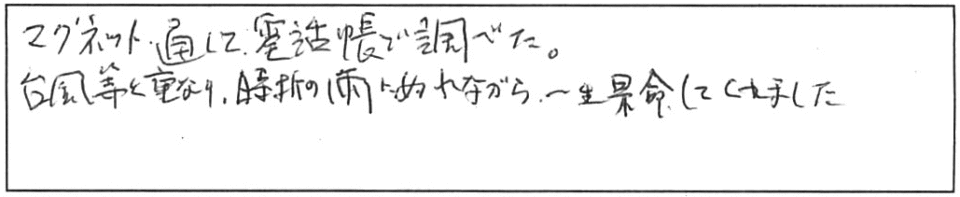 マグネット通して電話帳で調べた。
台風等と重なり、時折の雨にぬれながら、一生懸命してくれました